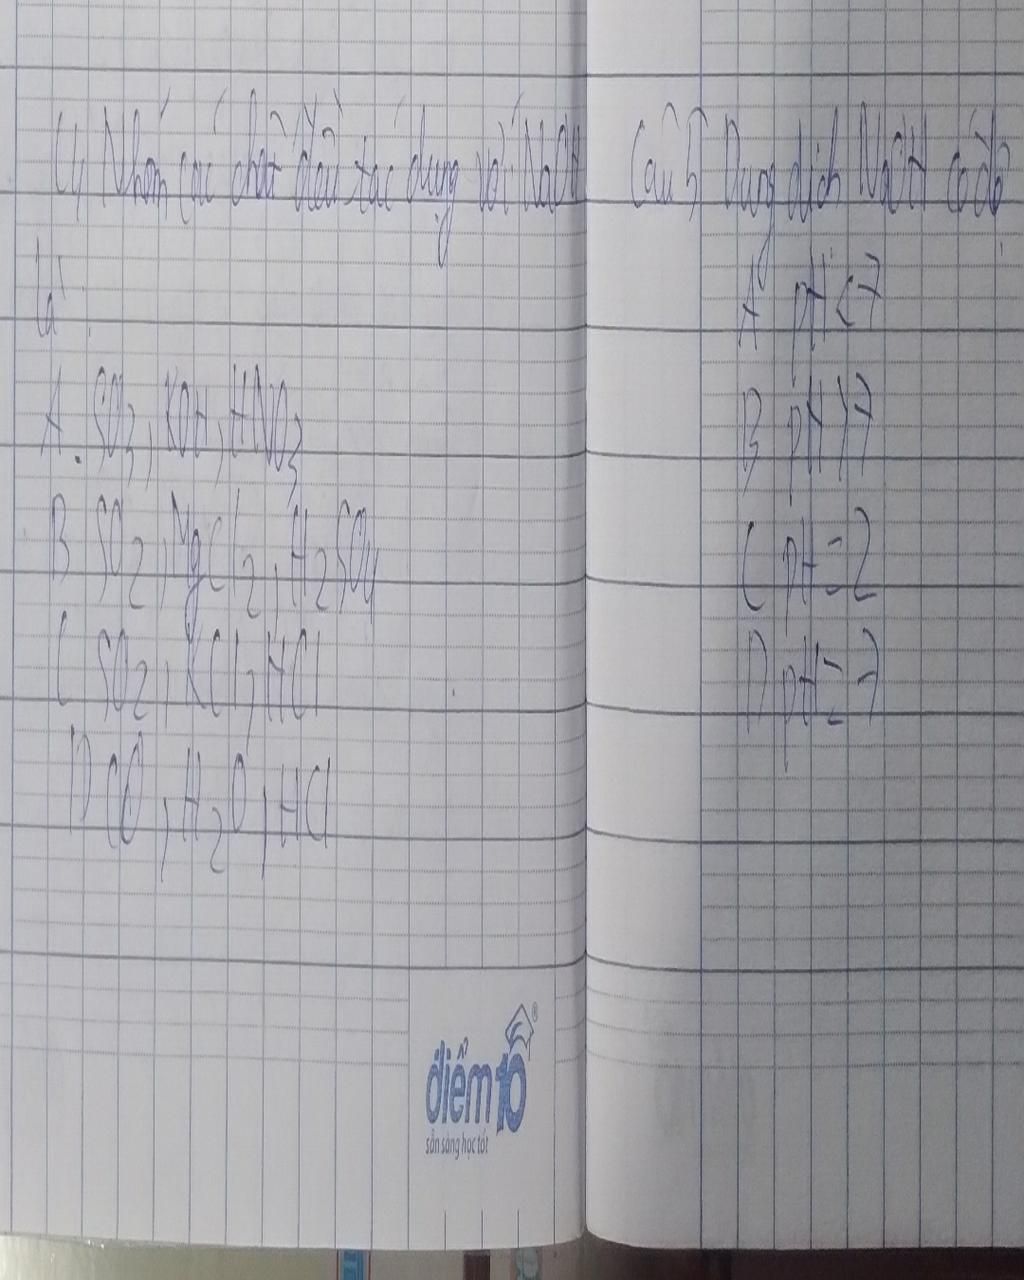 C4 Nhóm các chất đều tác dụng với NaOH
là:
A. SO3, KOH, HNO3
B SO2, MgCl2, H2SO4
C SO2, KCl, HCl
D CO, H2O, HCl
Câu 5 Dung dịch NaOH có độ
A pH < 7
B pH > 7
C pH = 2
D pH = 7
điểm 10
sẵn sàng học tốt